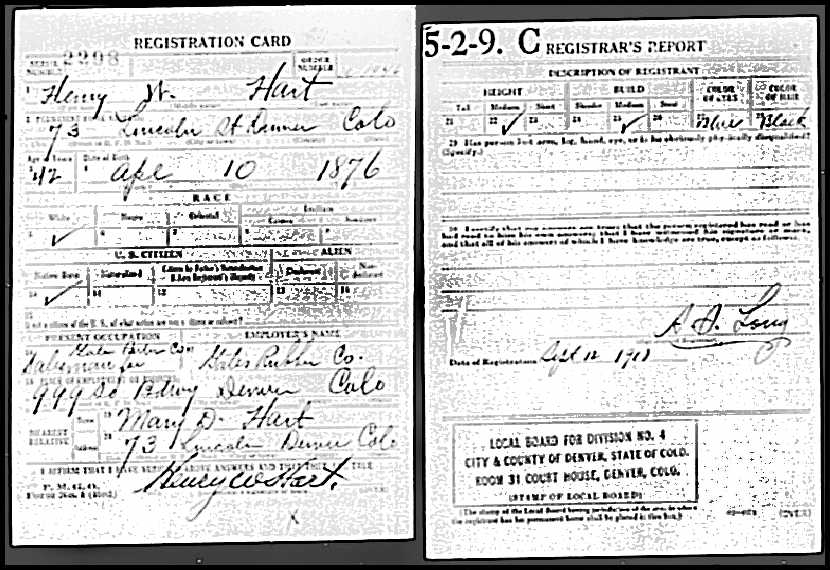 REGISTRATION CARD
SERIAL NUMBER 2398
ORDER NUMBER
Henry W. Hart
73 Lincoln St Denver Colo
Age in Years
Date of Birth
42 Apl 10 1876
RACE
White
Negro
Oriental
Indian
Citizen
Noncitizen
✓
U. S. CITIZEN
ALIEN
Native Born
Naturalized
Citizen by Father's Naturalization Before Registrant's Majority
Declarant
Non-declarant
10 ✓ 11 12 13 14
15
If not a citizen of the U. S., of what nation are you a citizen or subject?
PRESENT OCCUPATION
EMPLOYER'S NAME
Salesman for Gates Rubber Co
Gates Rubber Co.
PLACE OF EMPLOYMENT OR BUSINESS
999 So Bdwy Denver Colo
NEAREST RELATIVE
Name
Mary D. Hart
Address
73 Lincoln Denver Colo
I AFFIRM THAT I HAVE VERIFIED ABOVE ANSWERS AND THAT THEY ARE TRUE
P. M. G. O.
Form No. 1 (Red)
Henry W Hart.
5-2-9. C REGISTRAR'S REPORT
DESCRIPTION OF REGISTRANT
HEIGHT
BUILD
COLOR OF EYES
COLOR OF HAIR
Tall
Medium
Short
Slender
Medium
Stout
21 22 ✓ 23 24 25 ✓ 26 Blue Black
29 Has person lost arm, leg, hand, eye, or is he obviously physically disqualified?
(Specify.)
30 I certify that my answers are true; that the person registered has read or has
had read to him his own answers; that I have witnessed his signature or mark,
and that all of his answers of which I have knowledge are true, except as follows:
A. J. Long
Date of Registration Sept 12 1918
LOCAL BOARD FOR DIVISION NO. 4
CITY & COUNTY OF DENVER, STATE OF COLO.
ROOM 31 COURT HOUSE, DENVER, COLO.
(STAMP OF LOCAL BOARD)
(The stamp of the Local Board having jurisdiction of the area in which
the registrant has his permanent home shall be placed in this box.)
(OVER)